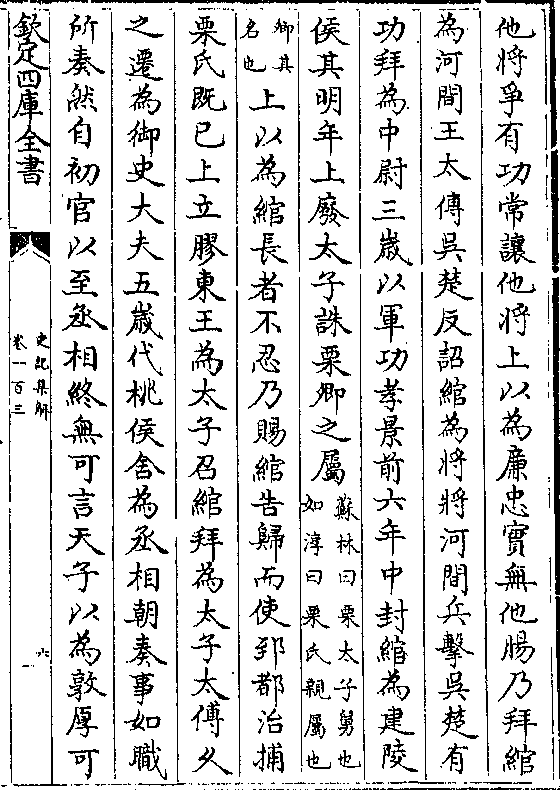 他將爭有功常讓他將上以為廉忠實無他腸乃拜綰
為河間王太傅吳楚反詔綰為將將河間兵擊吳楚有
功拜為中尉三歲以軍功孝景前六年中封綰為建陵
侯其明年上廢太子誅栗卿之屬蘇林曰栗太子舅也如淳曰栗氏親屬也
卿其名也上以為綰長者不忍乃賜綰告歸而使郅都治捕
栗氏既已上立膠東王為太子召綰拜為太子太傅久
之遷為御史大夫五歲代桃侯舍為丞相朝奏事如職
所奏然自初官以至丞相終無可言天子以為敦厚可
欽定四庫全書
史記集解
卷一百三
六